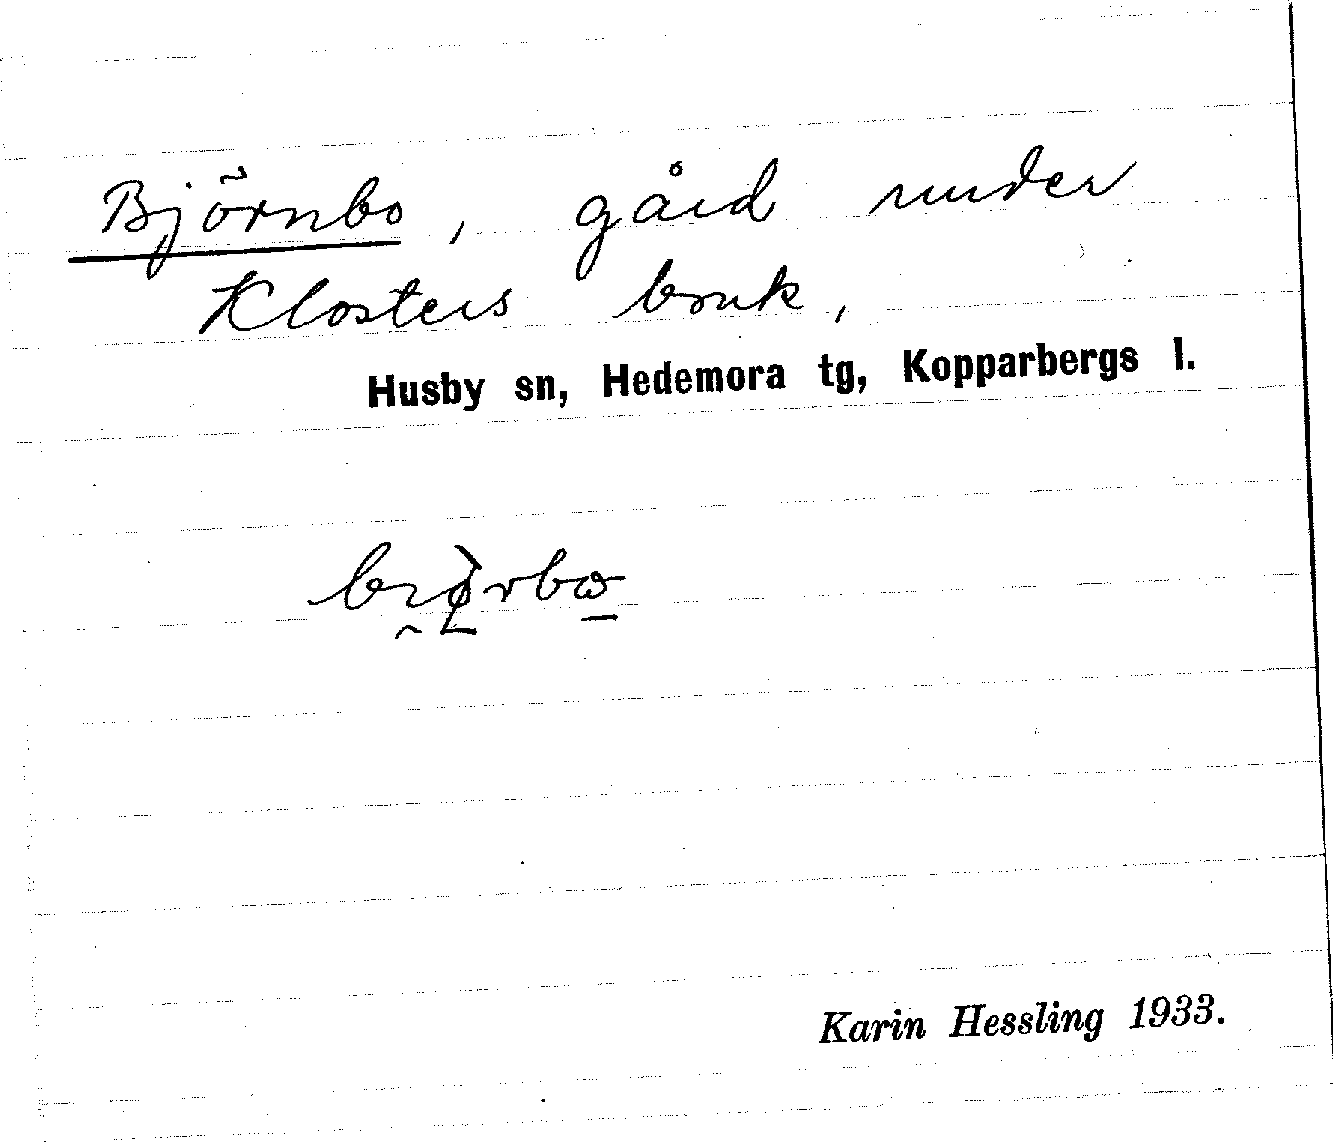 Björnbo, gård under
Klosters bruk,
Husby sn, Hedemora tg, Kopparbergs l.
Karin Hessling 1933.